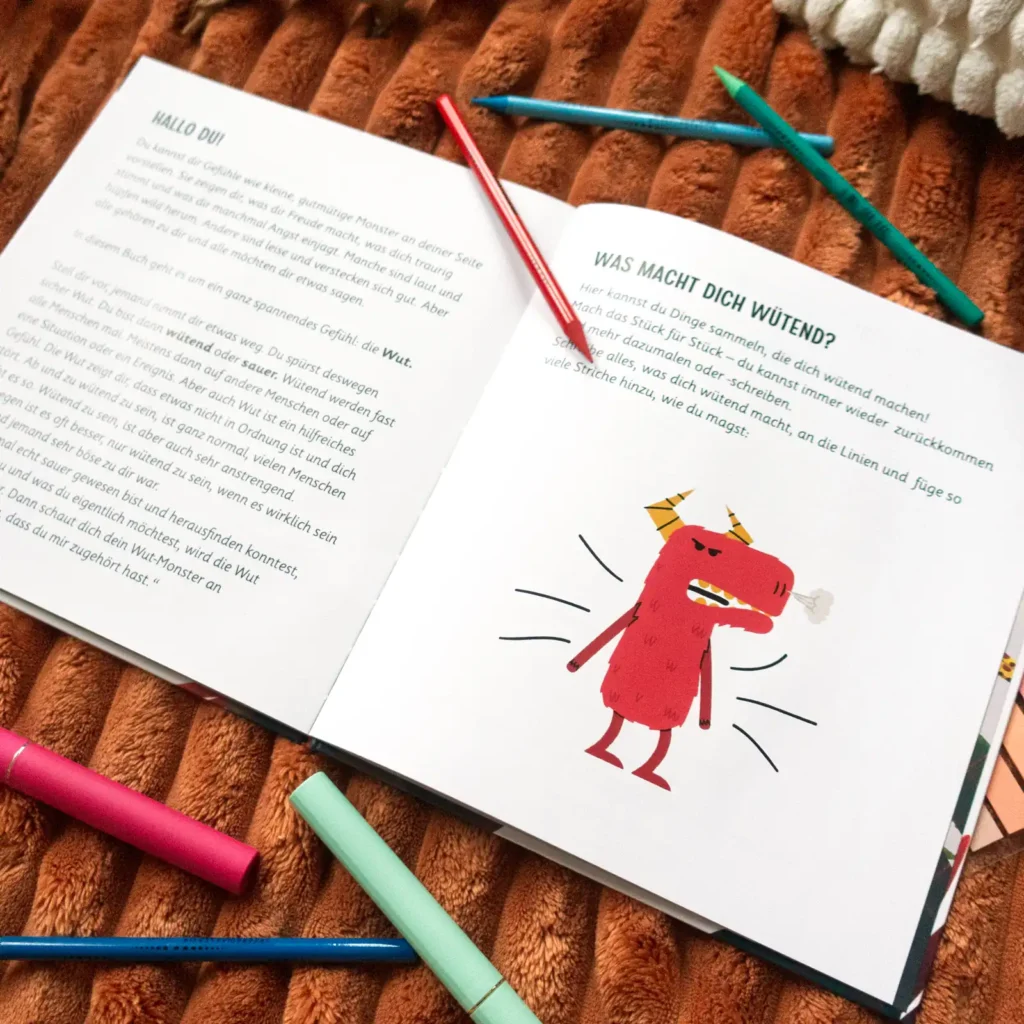 HALLO DU!
Du kannst dir Gefühle wie kleine, gutmütige Monster an deiner Seite
vorstellen. Sie zeigen dir, was dir Freude macht, was dich traurig
stimmt und was dir manchmal Angst einjagt. Manche sind laut und
hüpfen wild herum. Andere sind leise und verstecken sich gut. Aber
alle gehören zu dir und alle möchten dir etwas sagen.
In diesem Buch geht es um ein ganz spannendes Gefühl: die Wut.
Stell dir vor, jemand nimmt dir etwas weg. Du spürst deswegen
sicher Wut. Du bist dann wütend oder sauer. Wütend werden fast
alle Menschen mal. Meistens dann auf andere Menschen oder auf
eine Situation oder ein Ereignis. Aber auch Wut ist ein hilfreiches
Gefühl. Die Wut zeigt dir, dass etwas nicht in Ordnung ist und dich
Ab und zu wütend zu sein, ist ganz normal, vielen Menschen
es so. Wütend zu sein, ist aber auch sehr anstrengend.
ist es oft besser, nur wütend zu sein, wenn es wirklich sein
jemand sehr böse zu dir war.
echt sauer gewesen bist und herausfinden konntest,
und was du eigentlich möchtest, wird die Wut
Dann schaut dich dein Wut-Monster an
dass du mir zugehört hast.“
WAS MACHT DICH WÜTEND?
Hier kannst du Dinge sammeln, die dich wütend machen!
Mach das Stück für Stück – du kannst immer wieder zurückkommen
mehr dazumalen oder -schreiben.
alles, was dich wütend macht, an die Linien und füge so
viele Striche hinzu, wie du magst: